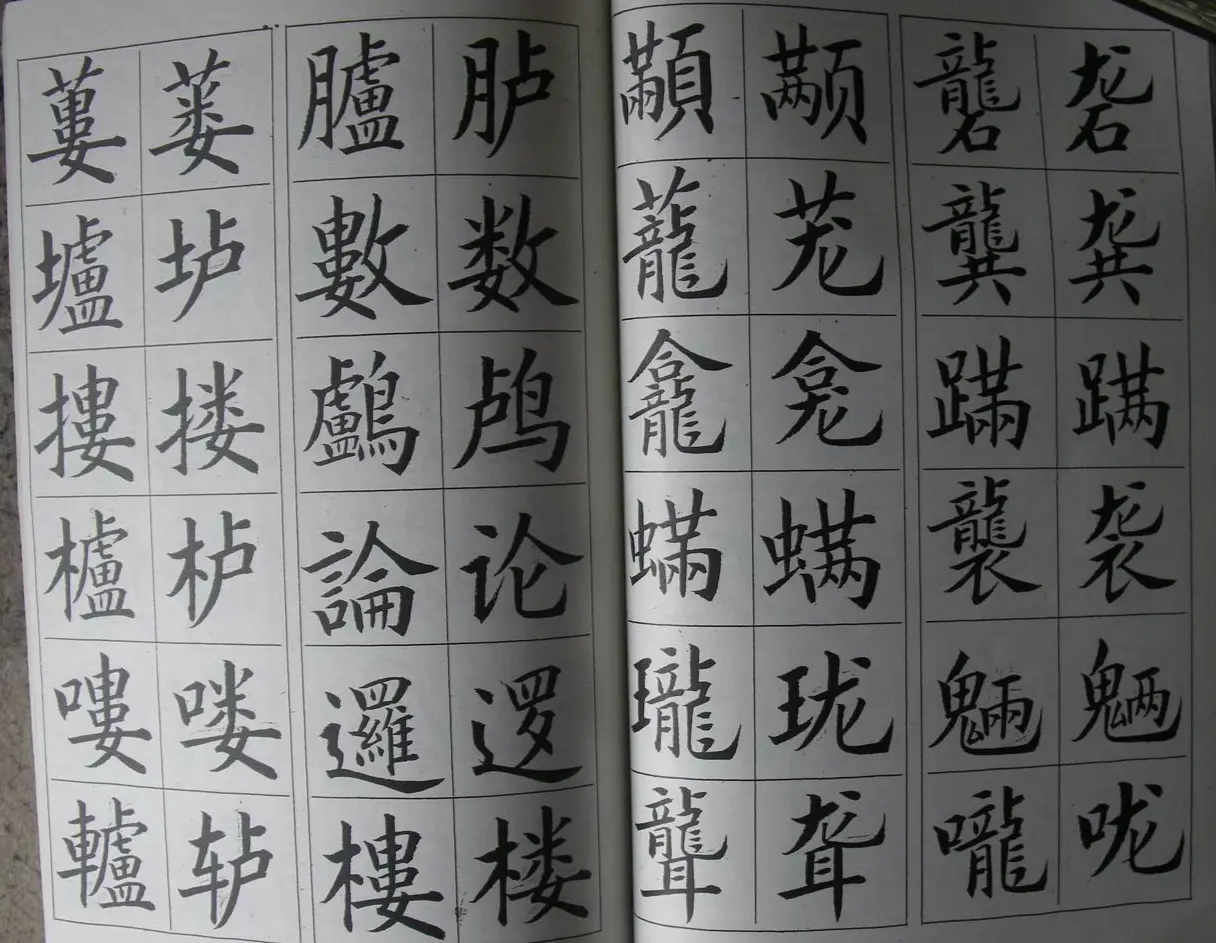 蔞 蒌 臚 胪
壚 垆 數 数
摟 搂 鸕 鸬
櫨 栌 論 论
嘍 喽 邏 逻
轤 轳 樓 楼
顢 颟 礱 砻
蘢 茏 龔 龚
龕 龛 蹣 蹒
蟎 螨 襲 袭
瓏 珑 魎 魉
聾 聋 嚨 咙